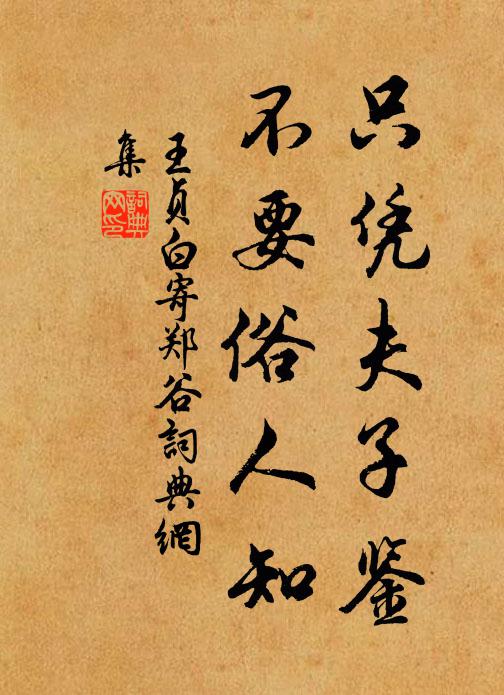 只凭夫子鉴
不要俗人知
王贞白寄郑谷詞典網
集
詞典
网印